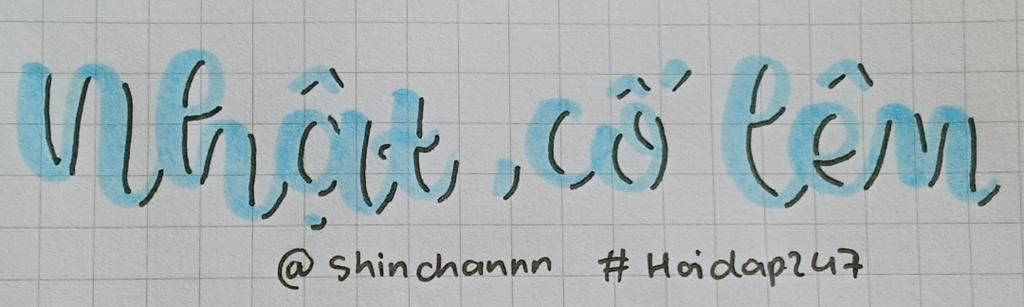 Nhật, cố lêm
@shinchannn #Hoidap247